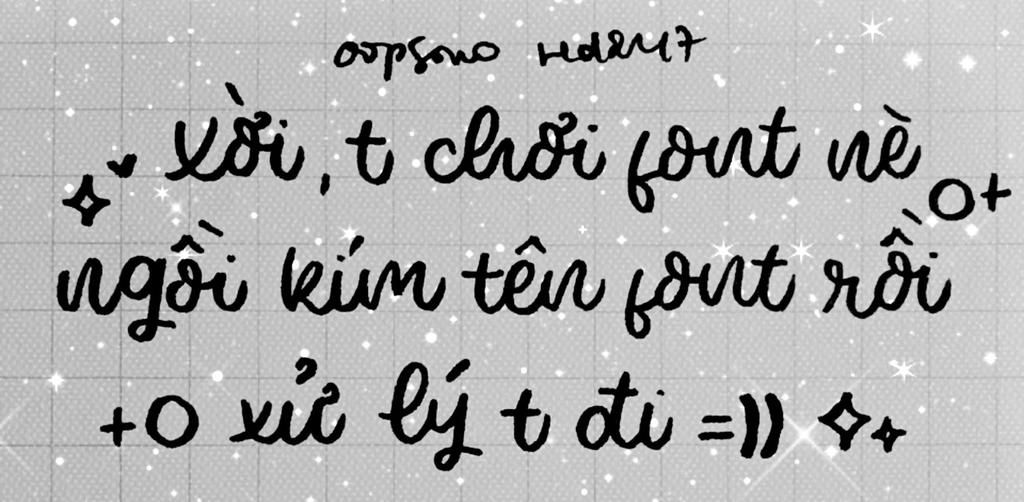 xời, t chơi font nè
ngồi kím tên font rồi
xử lý t đi =))